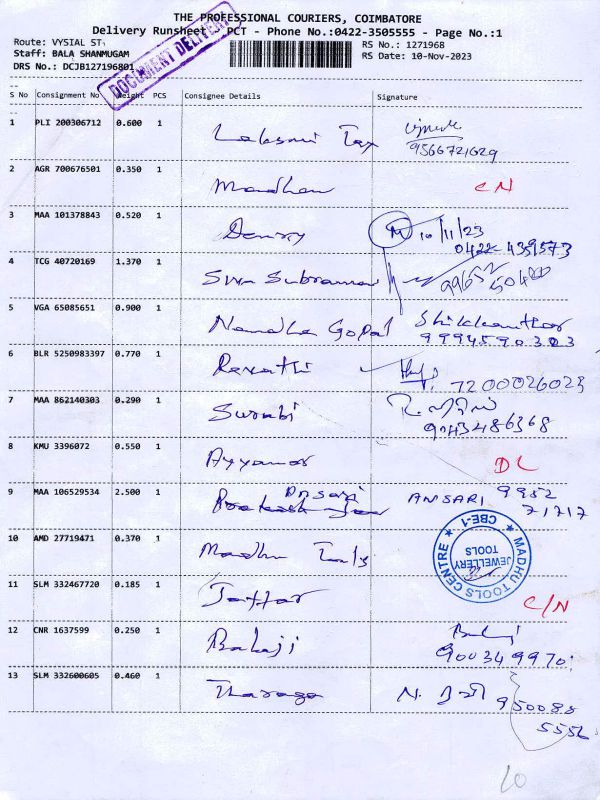 THE PROFESSIONAL COURIERS, COIMBATORE
Delivery Runsheet, PCT - Phone No.:0422-3505555 - Page No.:1
Route: VYSIAL ST
RS No.: 1271968
Staff: BALA SHANMUGAM
RS Date: 10-Nov-2023
DRS No.: DCJB127196801
DOCUMENT DELIVERY
S No Consignment No Weight PCS Consignee Details Signature
1 PLI 200306712 0.600 1 Laksmi Tex
9566721629
2 AGR 700676501 0.350 1 Madhan CN
3 MAA 101378843 0.520 1 Denny 10/11/23
0422-439573
4 TCG 40720169 1.370 1 Siva Subraman 99652
50400
5 VGA 65085651 0.900 1 Nandha Gopal Shikkanthar
9994590303
6 BLR 5250983397 0.770 1 Revathi
7200026023
7 MAA 862140303 0.290 1 Surabi
9043486368
8 KMU 3396072 0.550 1 Ayyanar DL
9 MAA 106529534 2.500 1 Ansari ANSARI 9952
71717
10 AMD 27719471 0.370 1 Madhu Tools
MADHU TOOLS CENTRE ★ CBE-1 ★
JEWELLERY
TOOLS
11 SLM 332467720 0.185 1 Jaffar C/N
12 CNR 1637599 0.250 1 Balaji Balaji
900349970
13 SLM 332600605 0.460 1 Tharaga N.
950088
5556
10